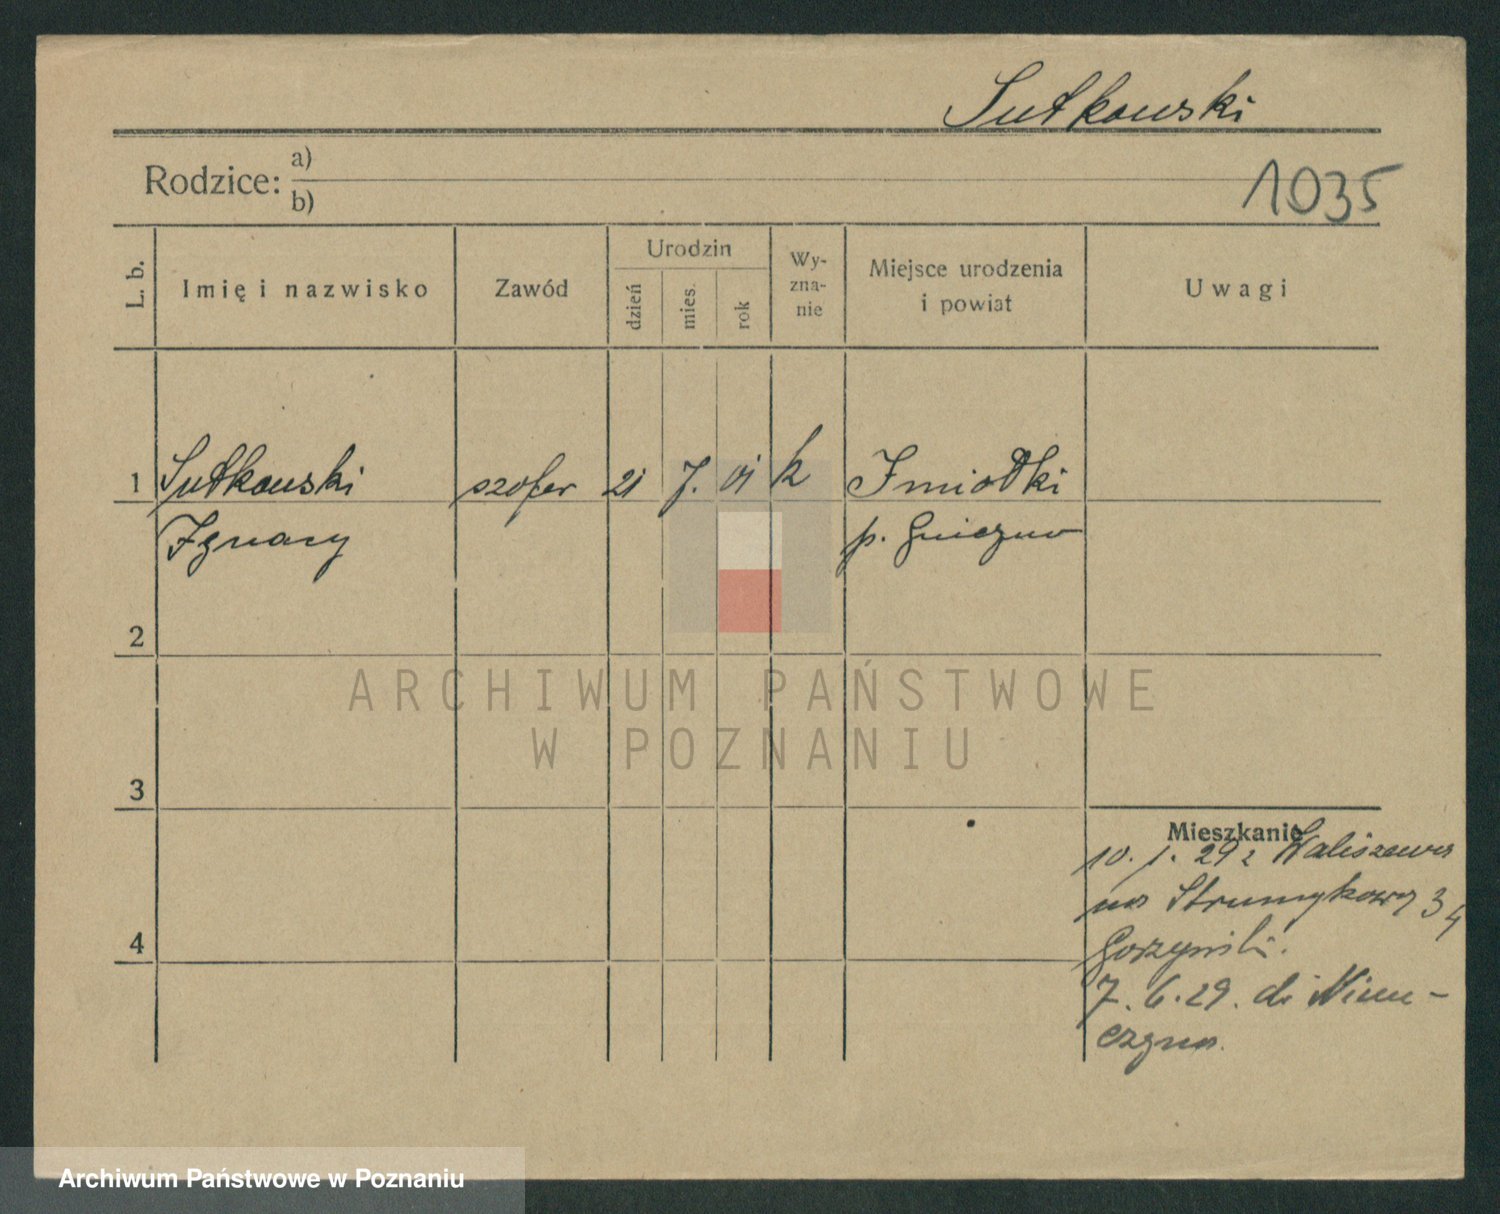 Sutkowski
Rodzice: a)
b)
1035
L. b.
Imię i nazwisko
Zawód
Urodzin
dzień
mies.
rok
Wy-
zna-
nie
Miejsce urodzenia
i powiat
Uwagi
1 Sutkowski szofer 21 7. 01 k Imiołki
Ignacy p. Gniezno
2
ARCHIWUM PAŃSTWOWE
W POZNANIU
3
Mieszkanie
10. 1. 29 z Waliszewa
na Strumykowa 34
7. 6. 29. do
4
Archiwum Państwowe w Poznaniu